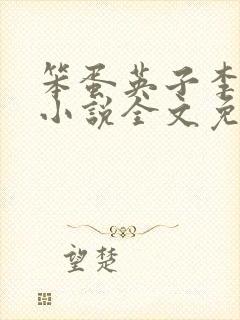 笨蛋英子李
小说全文免
望楚